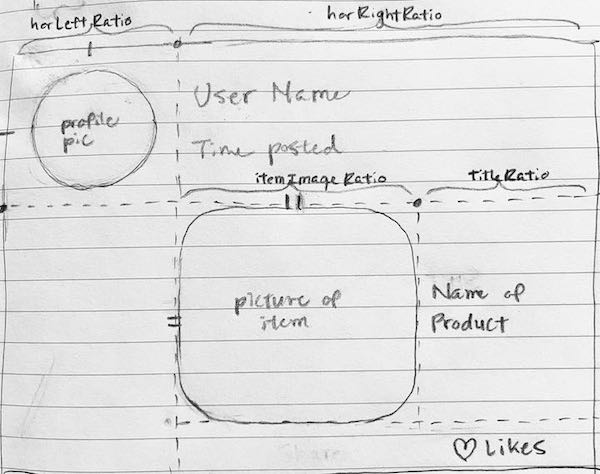 horLeftRatio
horRightRatio
profile
pic
User Name
Time posted
itemImageRatio
titleRatio
picture of
item
Name of
Product
Share
♡ Likes